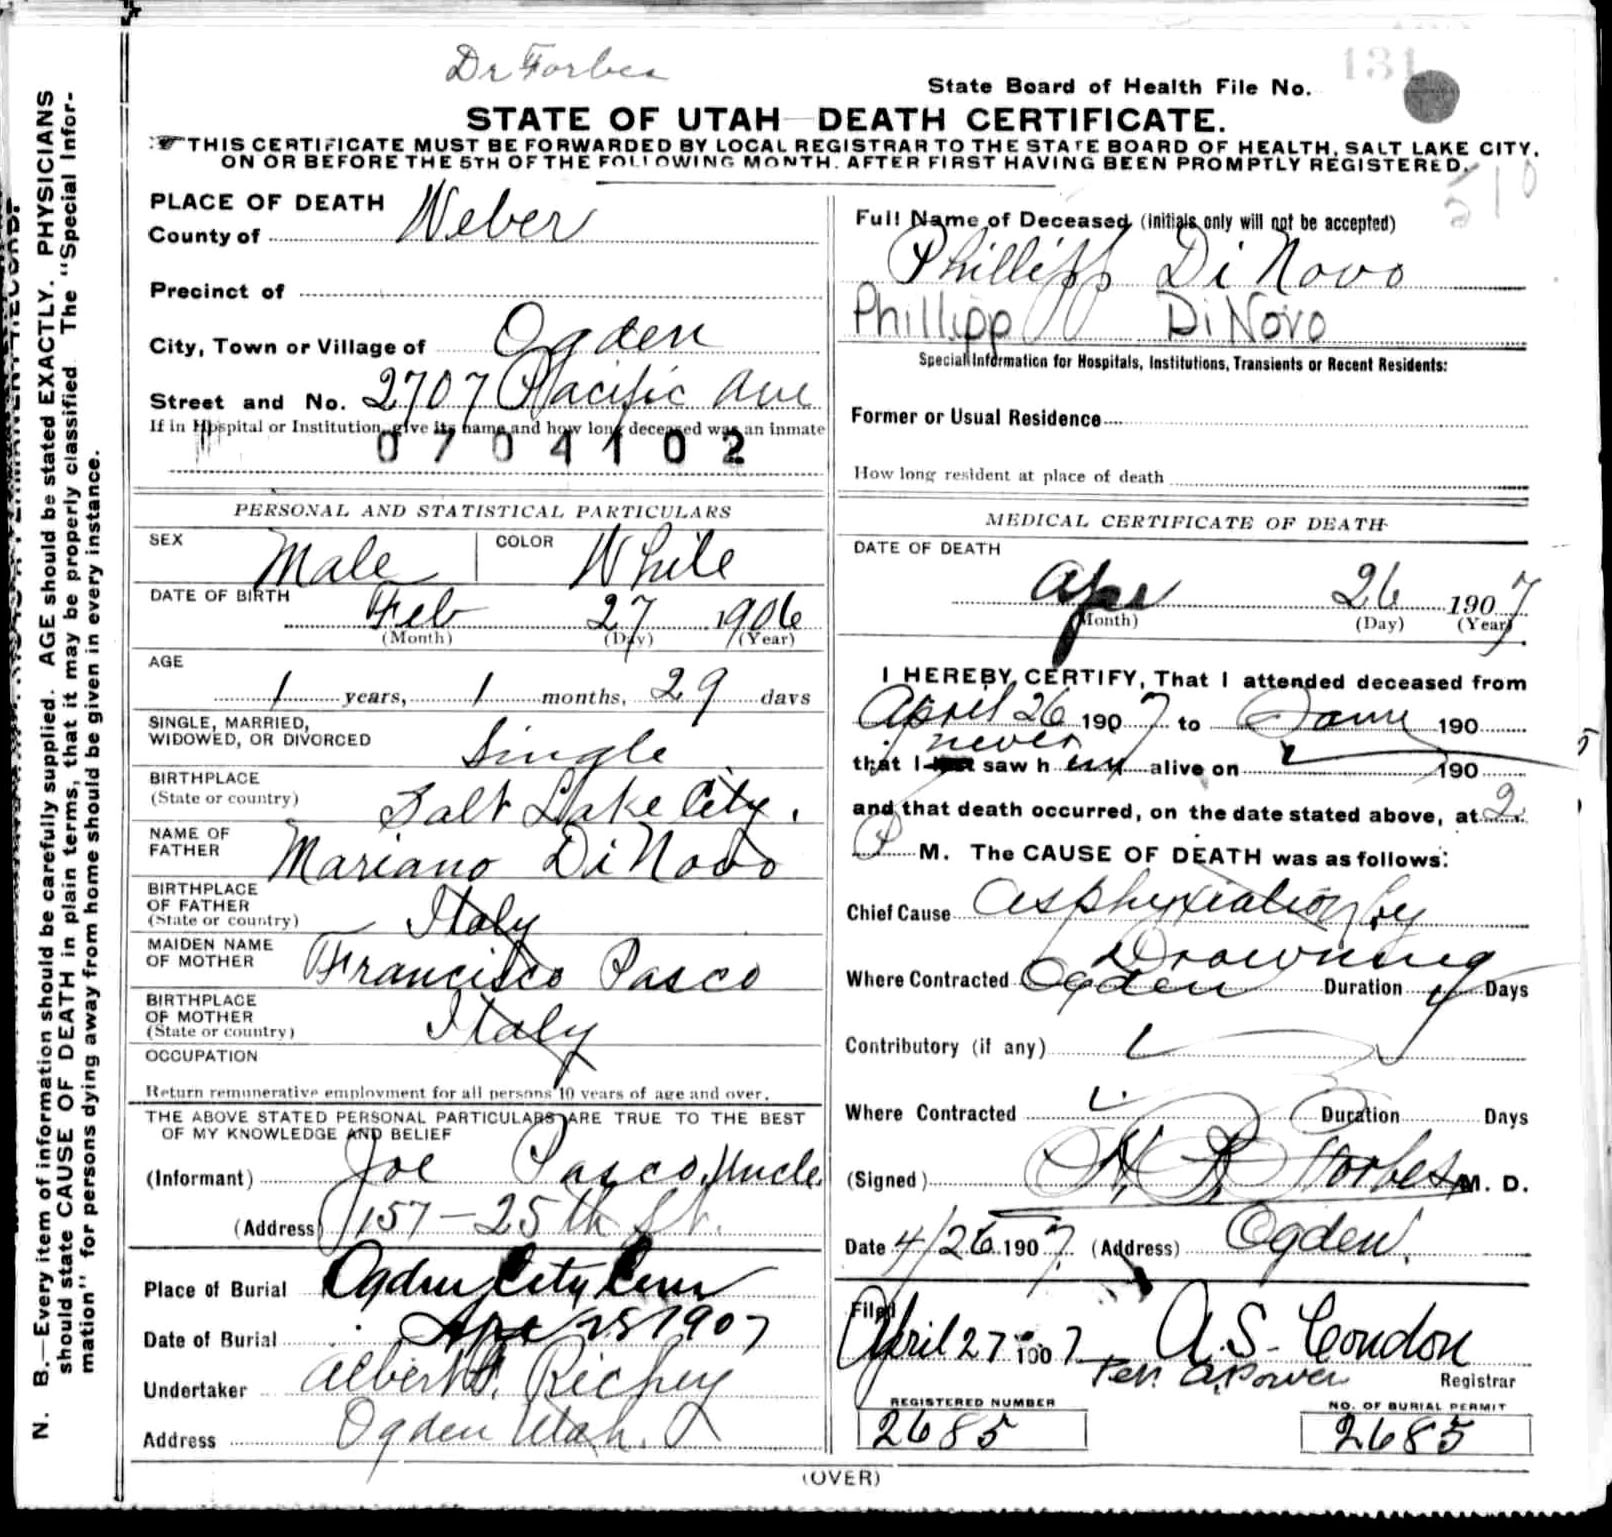 Dr Forbes
131
State Board of Health File No.
STATE OF UTAH—DEATH CERTIFICATE.
THIS CERTIFICATE MUST BE FORWARDED BY LOCAL REGISTRAR TO THE STATE BOARD OF HEALTH, SALT LAKE CITY,
ON OR BEFORE THE 5TH OF THE FOLLOWING MONTH, AFTER FIRST HAVING BEEN PROMPTLY REGISTERED.
510
PLACE OF DEATH
County of Weber
Precinct of
City, Town or Village of Ogden
Street and No. 2707 Pacific Ave
If in Hospital or Institution, give its name and how long deceased was an inmate
0704102
PERSONAL AND STATISTICAL PARTICULARS
SEX Male COLOR White
DATE OF BIRTH Feb 27 1906
(Month) (Day) (Year)
AGE
1 years, 1 months, 29 days
SINGLE, MARRIED,
WIDOWED, OR DIVORCED Single
BIRTHPLACE
(State or country) Salt Lake City.
NAME OF
FATHER Mariano DiNovo
BIRTHPLACE
OF FATHER
(State or country) Italy
MAIDEN NAME
OF MOTHER Francisco Pasco
BIRTHPLACE
OF MOTHER
(State or country) Italy
OCCUPATION
Return remunerative employment for all persons 10 years of age and over.
THE ABOVE STATED PERSONAL PARTICULARS ARE TRUE TO THE BEST
OF MY KNOWLEDGE AND BELIEF
(Informant) Joe Pasco, Uncle
(Address) 157-25th St.
Place of Burial Ogden City Cem
Date of Burial Apr 28 1907
Undertaker Albert Richey
Address Ogden Utah.
Full Name of Deceased (initials only will not be accepted)
Phillipp DiNovo
Phillipp DiNovo
Special Information for Hospitals, Institutions, Transients or Recent Residents:
Former or Usual Residence
How long resident at place of death
MEDICAL CERTIFICATE OF DEATH
DATE OF DEATH
Apr 26 1907
(Month) (Day) (Year)
I HEREBY CERTIFY, That I attended deceased from
April 26 1907 to Same 190
never
that I last saw him alive on 190
and that death occurred, on the date stated above, at 2
P M. The CAUSE OF DEATH was as follows:
Chief Cause Asphyxiation by
Drowning
Where Contracted Ogden Duration Days
Contributory (if any)
Where Contracted Duration Days
(Signed) Forbes M. D.
Date 4/26 1907. (Address) Ogden.
Filed
April 27 1907 A. S. Condon
Per. A. Power Registrar
REGISTERED NUMBER NO. OF BURIAL PERMIT
2685 2685
(OVER)
N. B.—Every item of information should be carefully supplied. AGE should be stated EXACTLY. PHYSICIANS
should state CAUSE OF DEATH in plain terms, that it may be properly classified. The "Special Infor-
mation" for persons dying away from home should be given in every instance.